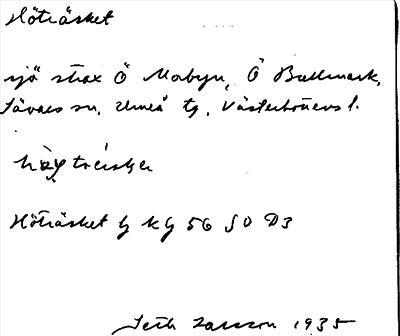 Höträsket
sjö strax Ö Mobyn, Ö Bullmark,
Sävars sn, Umeå tg, Västerbottens l.
Höträsket hj kg 56 SO D3
Seth Larsson 1935